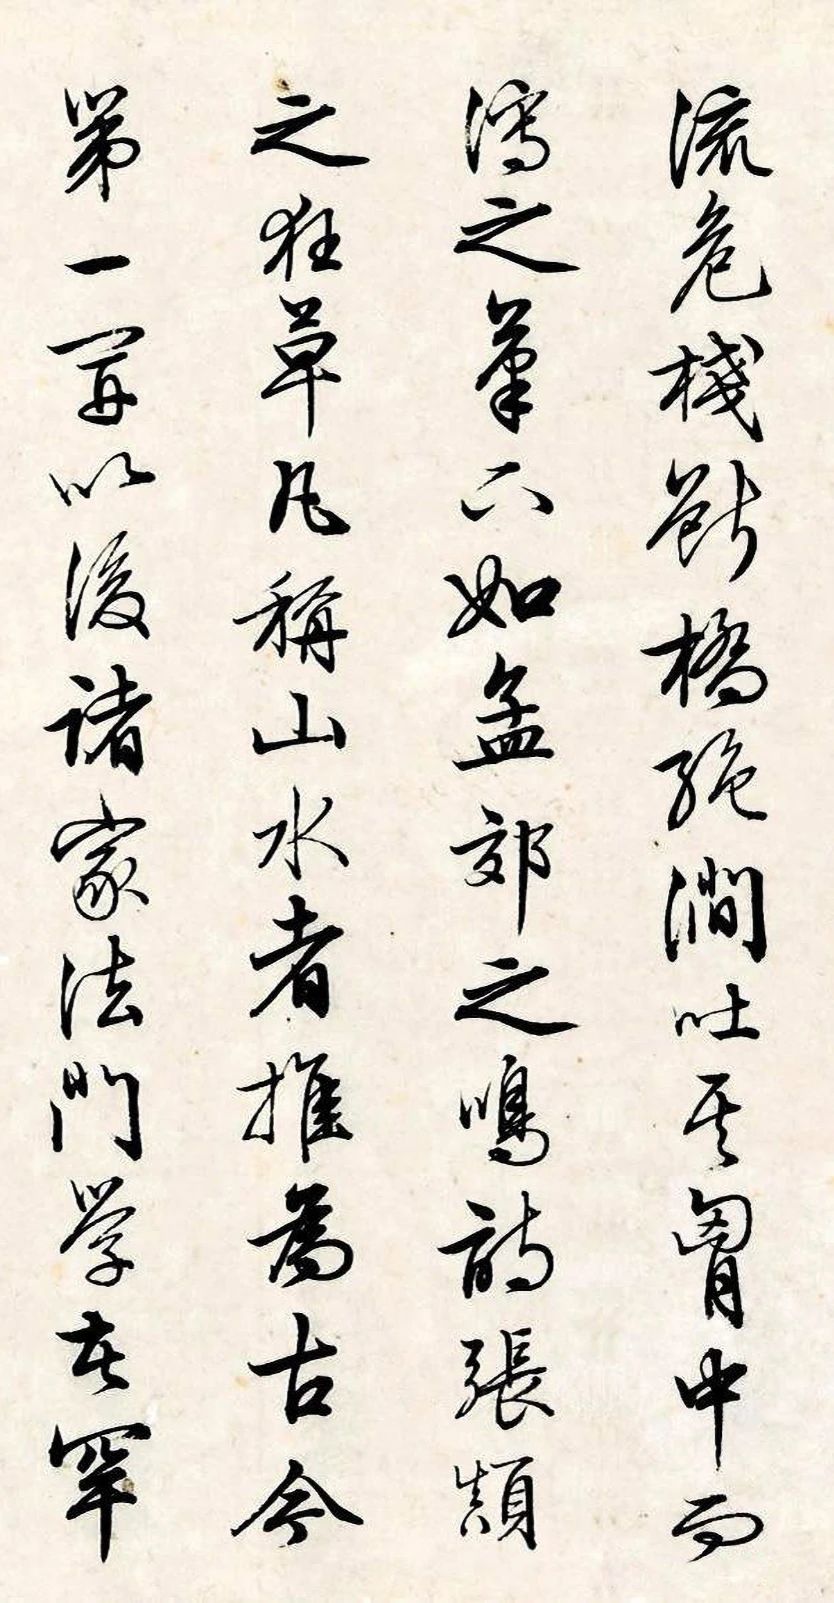 流危棧斷橋絶澗吐其胷中而
瀉之筆下如孟郊之鳴詩張顛
之狂草凡稱山水者推為古今
第一以後諸家法門学者罕